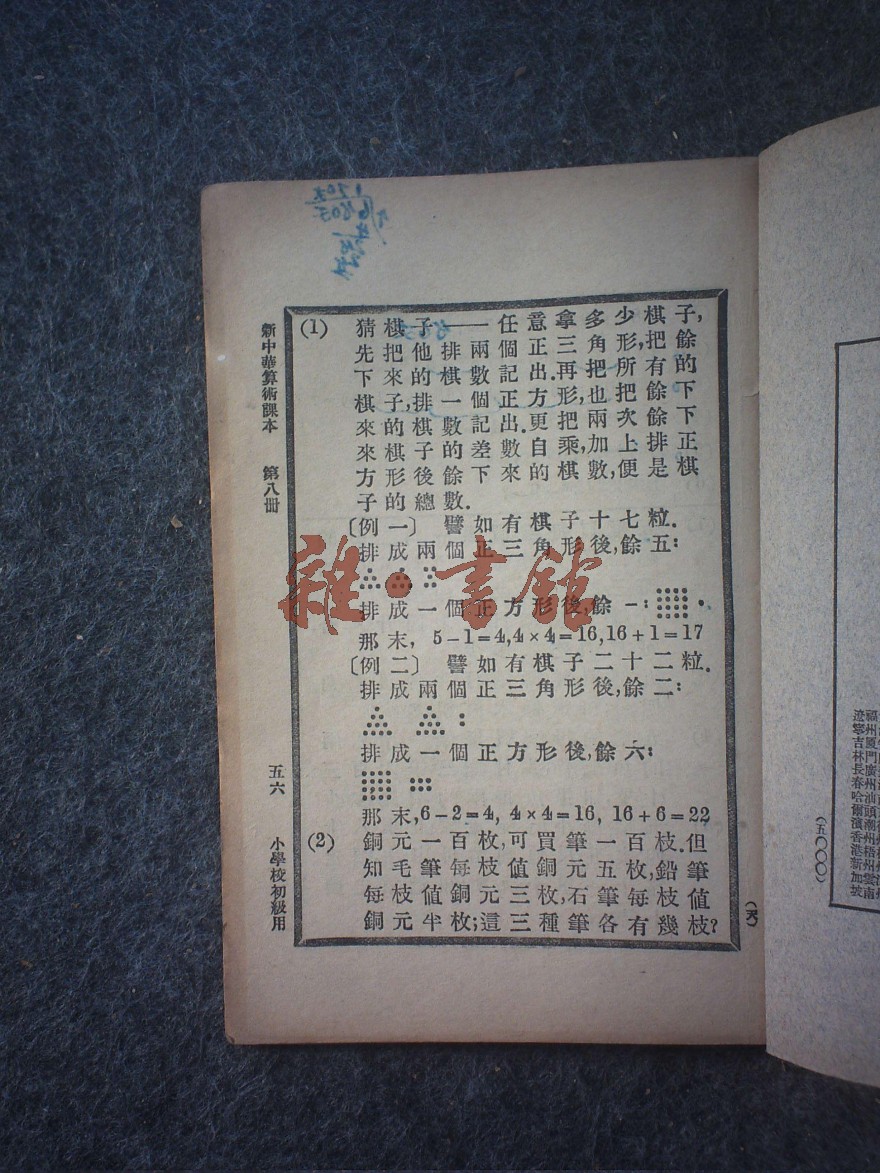 新中華算術課本 第八冊
五六
小學校初級用
(1) 猜棋子——任意拿多少棋子,
先把他排兩個正三角形,把餘
下來的棋數記出.再把所有的
棋子,排一個正方形,也把餘下
來的棋數記出.更把兩次餘下
來棋子的差數自乘,加上排正
方形後餘下來的棋數,便是棋
子的總數.
〔例一〕 譬如有棋子十七粒.
排成兩個正三角形後,餘五:
排成一個正方形後,餘一:
那末, 5-1=4,4×4=16,16+1=17
〔例二〕 譬如有棋子二十二粒.
排成兩個正三角形後,餘二:
排成一個正方形後,餘六:
那末,6-2=4, 4×4=16, 16+6=22
(2) 銅元一百枚,可買筆一百枝.但
知毛筆每枝值銅元五枚,鉛筆
每枝值銅元三枚,石筆每枝值
銅元半枚;這三種筆各有幾枝?
雜·書館
(五〇〇〇)